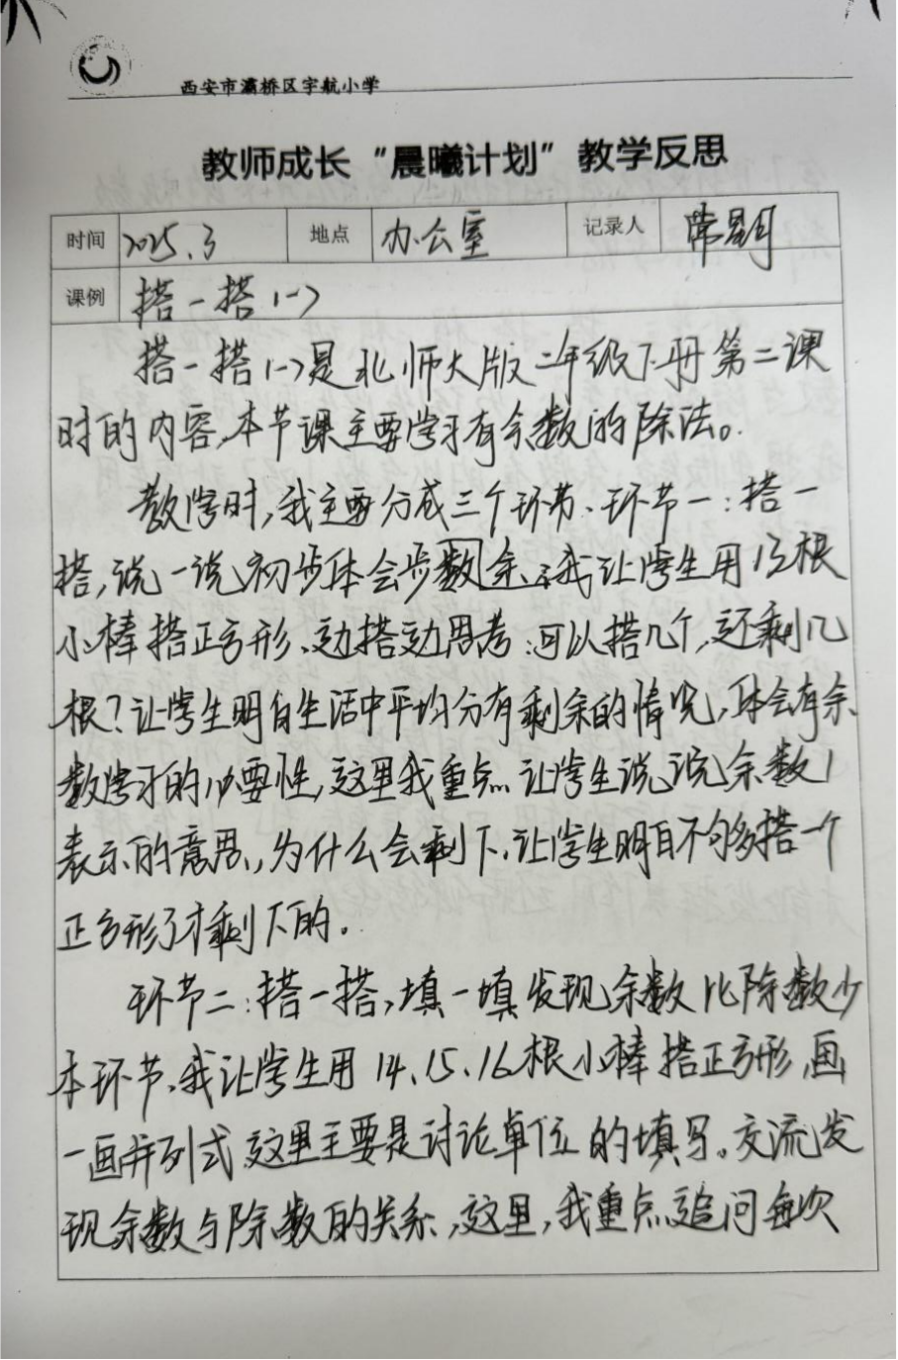 西安市灞桥区宇航小学
教师成长“晨曦计划”教学反思
时间 2025.3 地点 办公室 记录人 常
课例 搭一搭(一)
搭一搭(一)是北师大版二年级下册第二课
时的内容,本节课主要学习有余数的除法。
教学时,我主要分成三个环节、环节一:搭一
搭,说一说初步体会 数 余 我让学生用13根
小棒搭正方形、边搭边思考:可以搭几个,还剩几
根?让学生明白生活中平均分有剩余的情况,体会有余
数学习的必要性,这里我重点让学生说说余数1
表示的意思,为什么会剩下,让学生明白不够多搭一个
正方形了才剩下的。
环节二:搭一搭,填一填发现余数比除数少
本环节,我让学生用14、15、16根小棒搭正方形,画
一画并列式这里主要是讨论单位的填写。交流发
现余数与除数的关系,这里,我重点追问每次